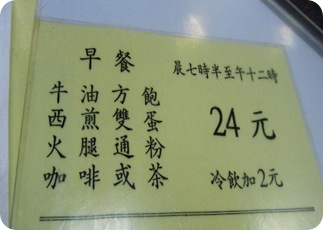 早餐
晨七時半至午十二時
牛油方飽
西煎雙蛋
火腿通粉
咖啡或茶
24元
冷飲加2元